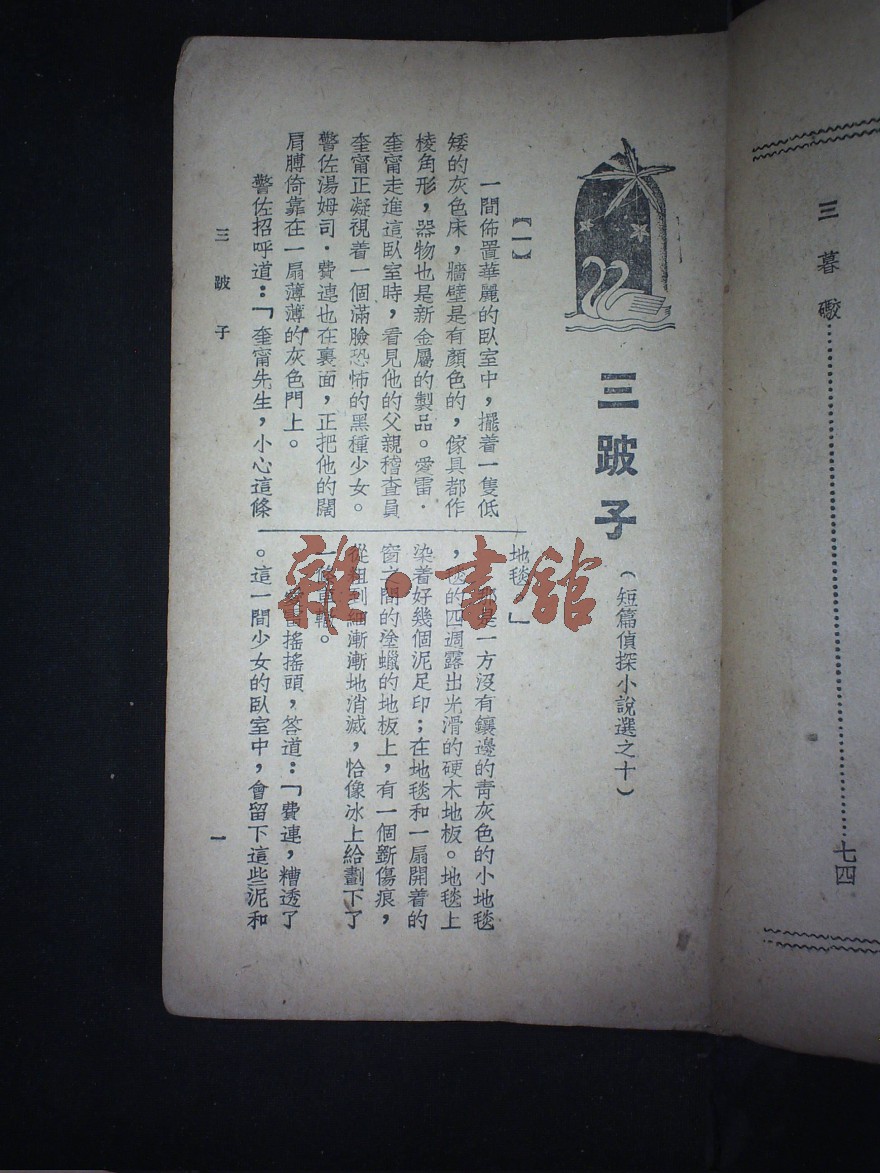 三暮礟……七四
三跛子
(短篇偵探小說選之十)
【一】
一間佈置華麗的臥室中,擺着一隻低
矮的灰色床,牆壁是有顏色的,傢具都作
棱角形,器物也是新金屬的製品。愛雷·
奎甯走進這臥室時,看見他的父親稽查員
奎甯正凝視着一個滿臉恐怖的黑種少女。
警佐湯姆司·費連也在裏面,正把他的闊
肩膊倚靠在一扇薄薄的灰色門上。
警佐招呼道:「奎甯先生,小心這條
地毯」
那是一方沒有鑲邊的青灰色的小地毯
,毯的四週露出光滑的硬木地板。地毯上
染着好幾個泥足印;在地毯和一扇開着的
窗之間的塗蠟的地板上,有一個斵傷痕,
從粗到細漸漸地消滅,恰像冰上給劃下了
一條車轍。
愛雷搖搖頭,答道:「費連,糟透了
。這一間少女的臥室中,會留下這些泥和
三跛子
一
雜·書館